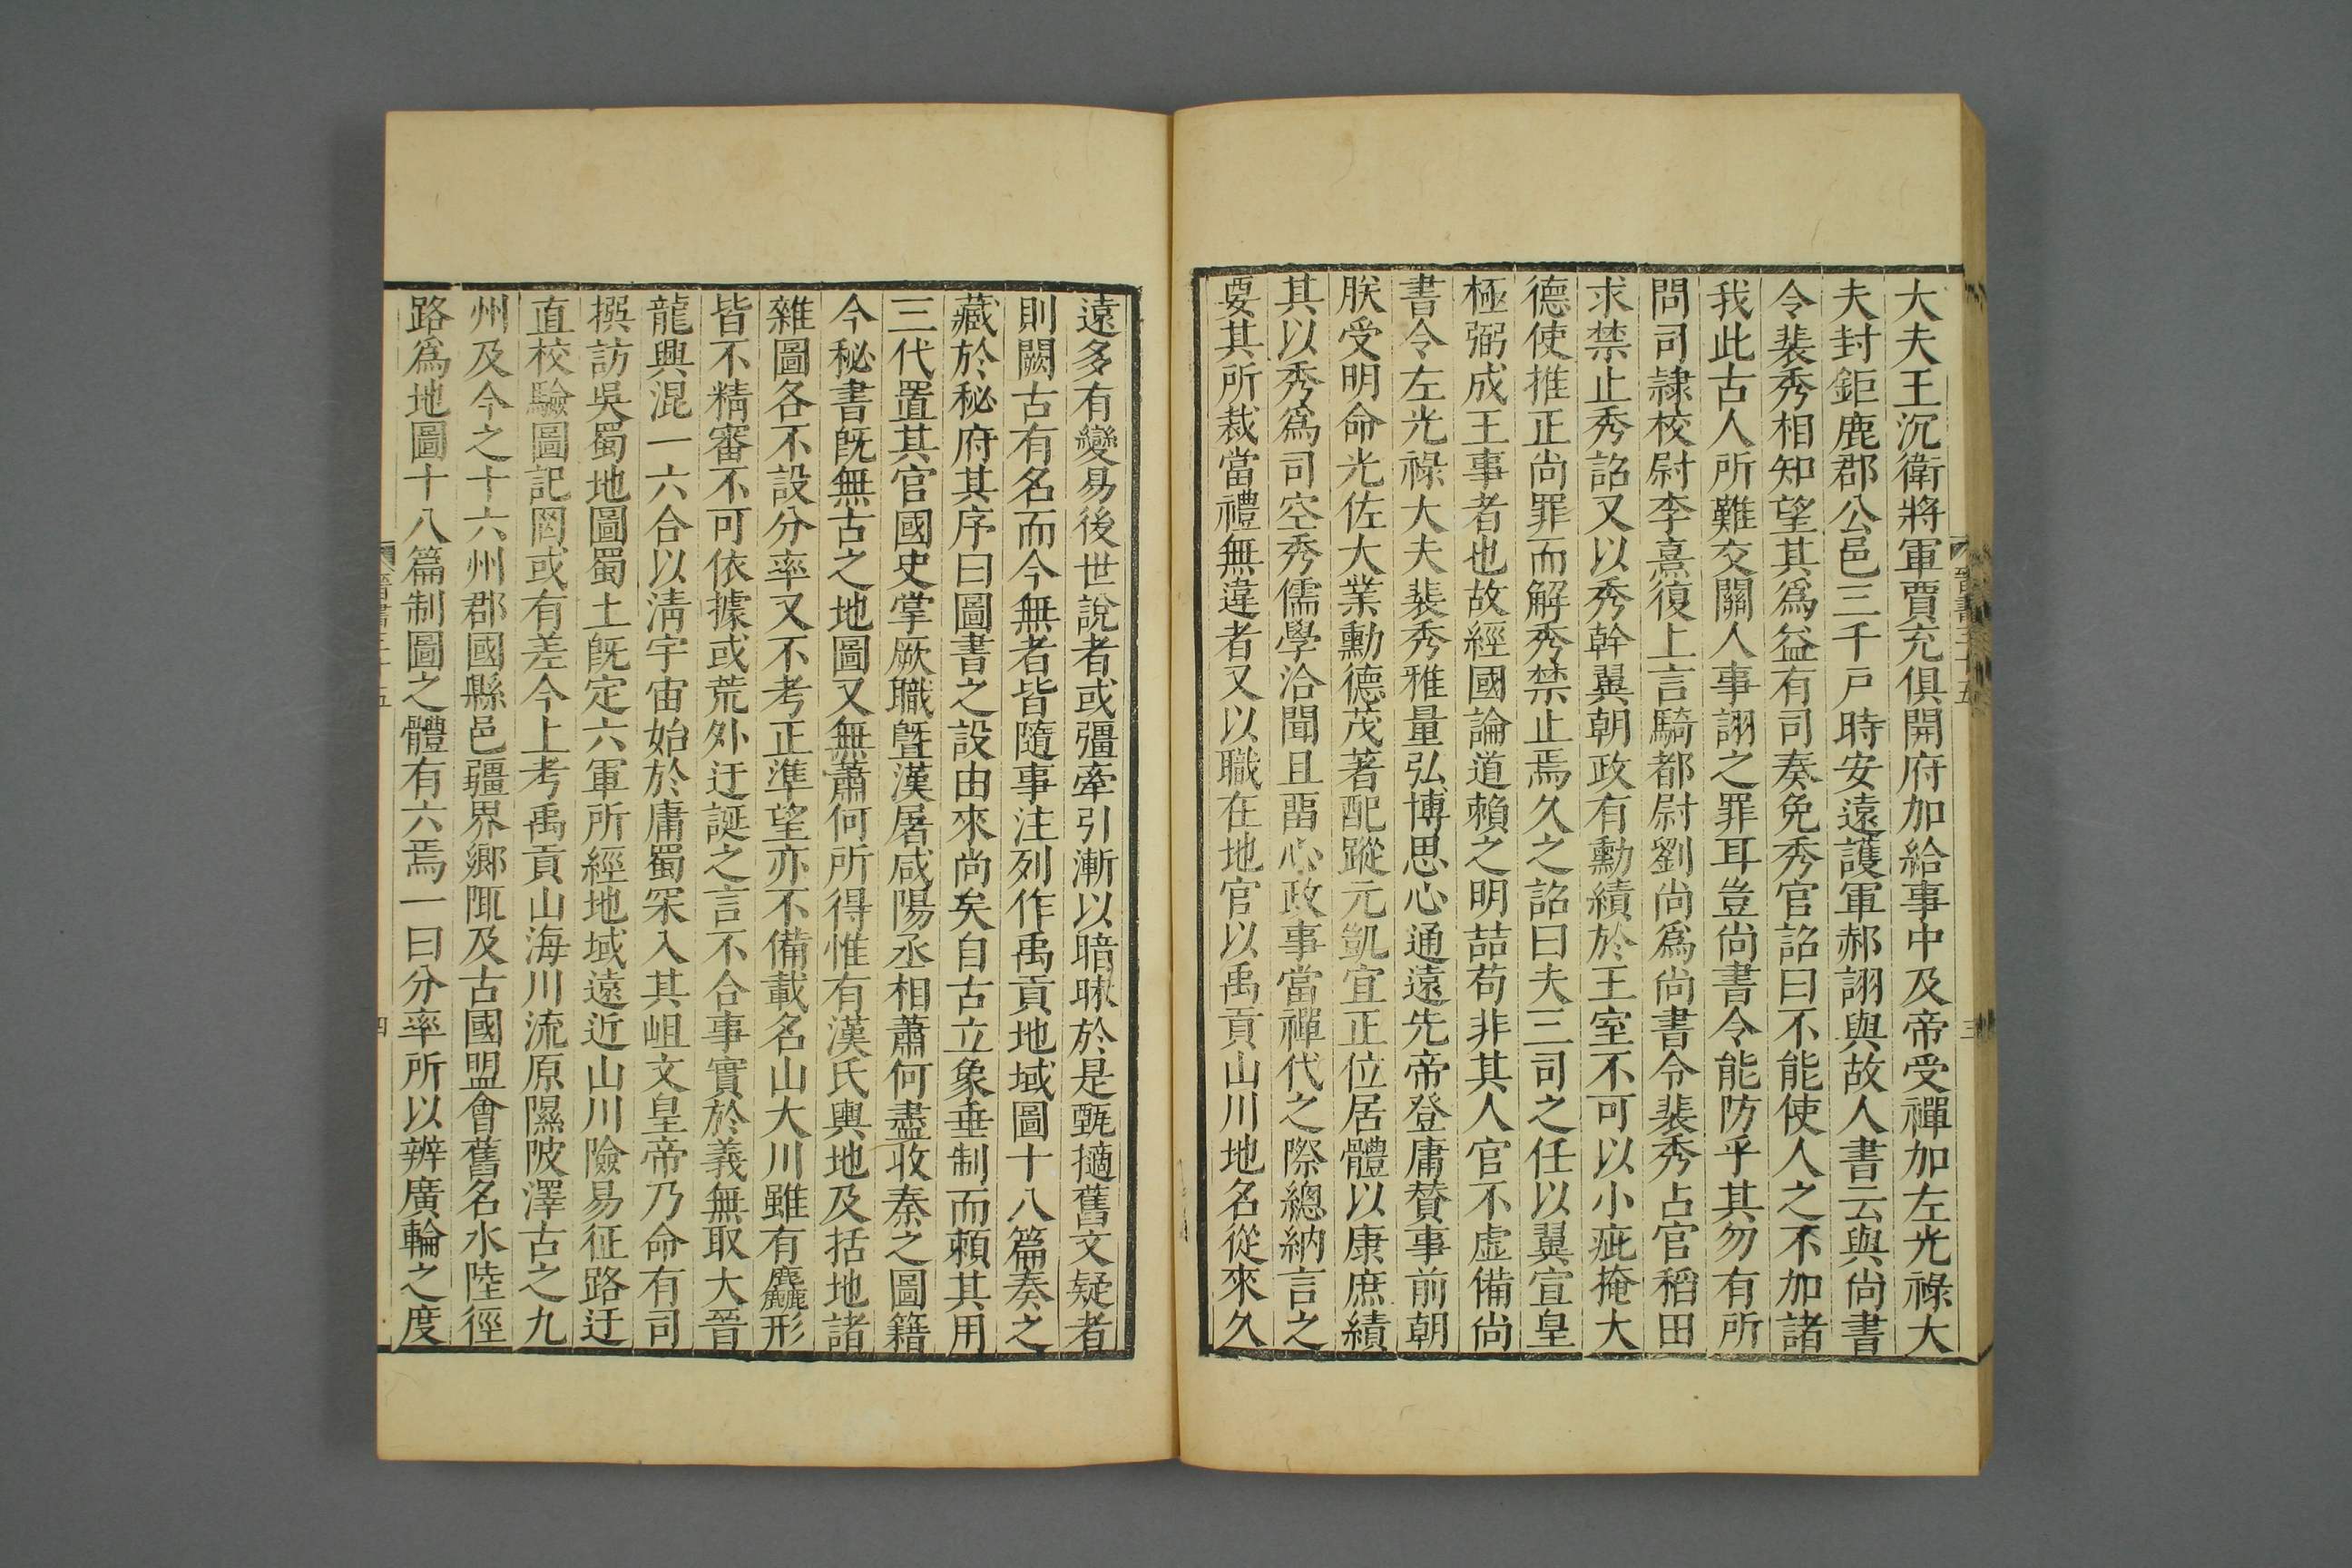 大夫王沉衛將軍賈充俱開府加給事中及帝受禪加左光祿大
夫封鉅鹿郡公邑三千戸時安遠護軍郝詡與故人書云與尚書
令裴秀相知望其爲益有司奏免秀官詔曰不能使人之不加諸
我此古人所難交關人事詡之罪耳豈尚書令能防乎其勿有所
問司隷校尉李熹復上言騎都尉劉尚爲尚書令裴秀占官稻田
求禁止秀詔又以秀幹翼朝政有勳績於王室不可以小疵掩大
德使推正尚罪而解秀禁止焉久之詔曰夫三司之任以翼宣皇
極弼成王事者也故經國論道賴之明喆苟非其人官不虛備尚
書令左光祿大夫裴秀雅量弘博思心通遠先帝登庸贊事前朝
朕受明命光佐大業勳德茂著配蹤元凱宜正位居體以康庶績
其以秀爲司空秀儒學洽聞且畱心政事當禪代之際總納言之
要其所裁當禮無違者又以職在地官以禹貢山川地名從來久
遠多有變易後世說者或彊牽引漸以暗昧於是甄擿舊文疑者
則闕古有名而今無者皆隨事注列作禹貢地域圖十八篇奏之
藏於秘府其序曰圖書之設由來尚矣自古立象垂制而賴其用
三代置其官國史掌厥職曁漢屠咸陽丞相蕭何盡收秦之圖籍
今秘書旣無古之地圖又無蕭何所得惟有漢氏輿地及括地諸
雜圖各不設分率又不考正準望亦不備載名山大川雖有麤形
皆不精審不可依據或荒外迂誕之言不合事實於義無取大晉
龍興混一六合以淸宇宙始於庸蜀罙入其岨文皇帝乃命有司
撰訪吳蜀地圖蜀土旣定六軍所經地域遠近山川險易征路迂
直校驗圖記罔或有差今上考禹貢山海川流原隰陂澤古之九
州及今之十六州郡國縣邑疆界鄉陬及古國盟會舊名水陸徑
路爲地圖十八篇制圖之體有六焉一曰分率所以辨廣輪之度